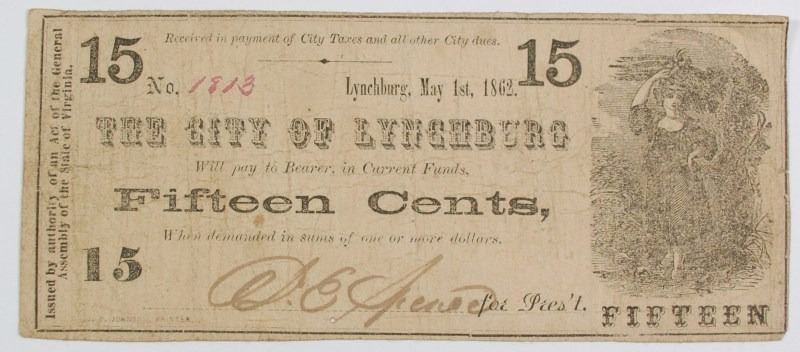 Issued by authority of an Act of the General
Assembly of the State of Virginia.
15
Received in payment of City Taxes and all other City dues.
15
No. 1813
Lynchburg, May 1st, 1862.
THE CITY OF LYNCHBURG
Will pay to Bearer, in Current Funds,
Fifteen Cents,
When demanded in sums of one or more dollars.
15
Spence for Pres't.
FIFTEEN